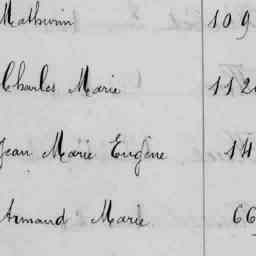 Mathurin 109
Charles Marie 112
Jean Marie Eugène 14
Armand Marie 66